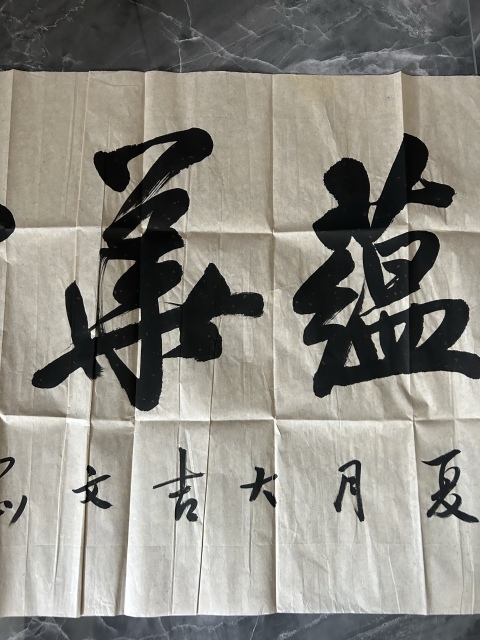 蕴華
夏月大吉文